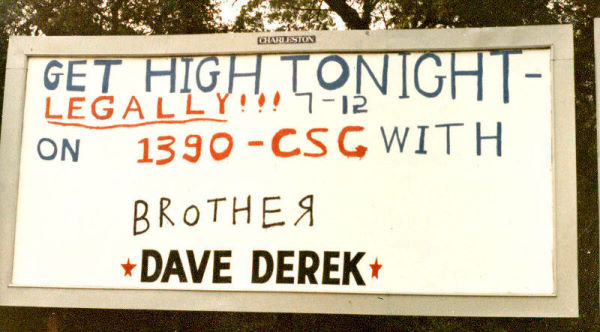 CHARLESTON
GET HIGH TONIGHT-
LEGALLY!!! 7-12
ON 1390-CSG WITH
BROTHEЯ
★DAVE DEREK★